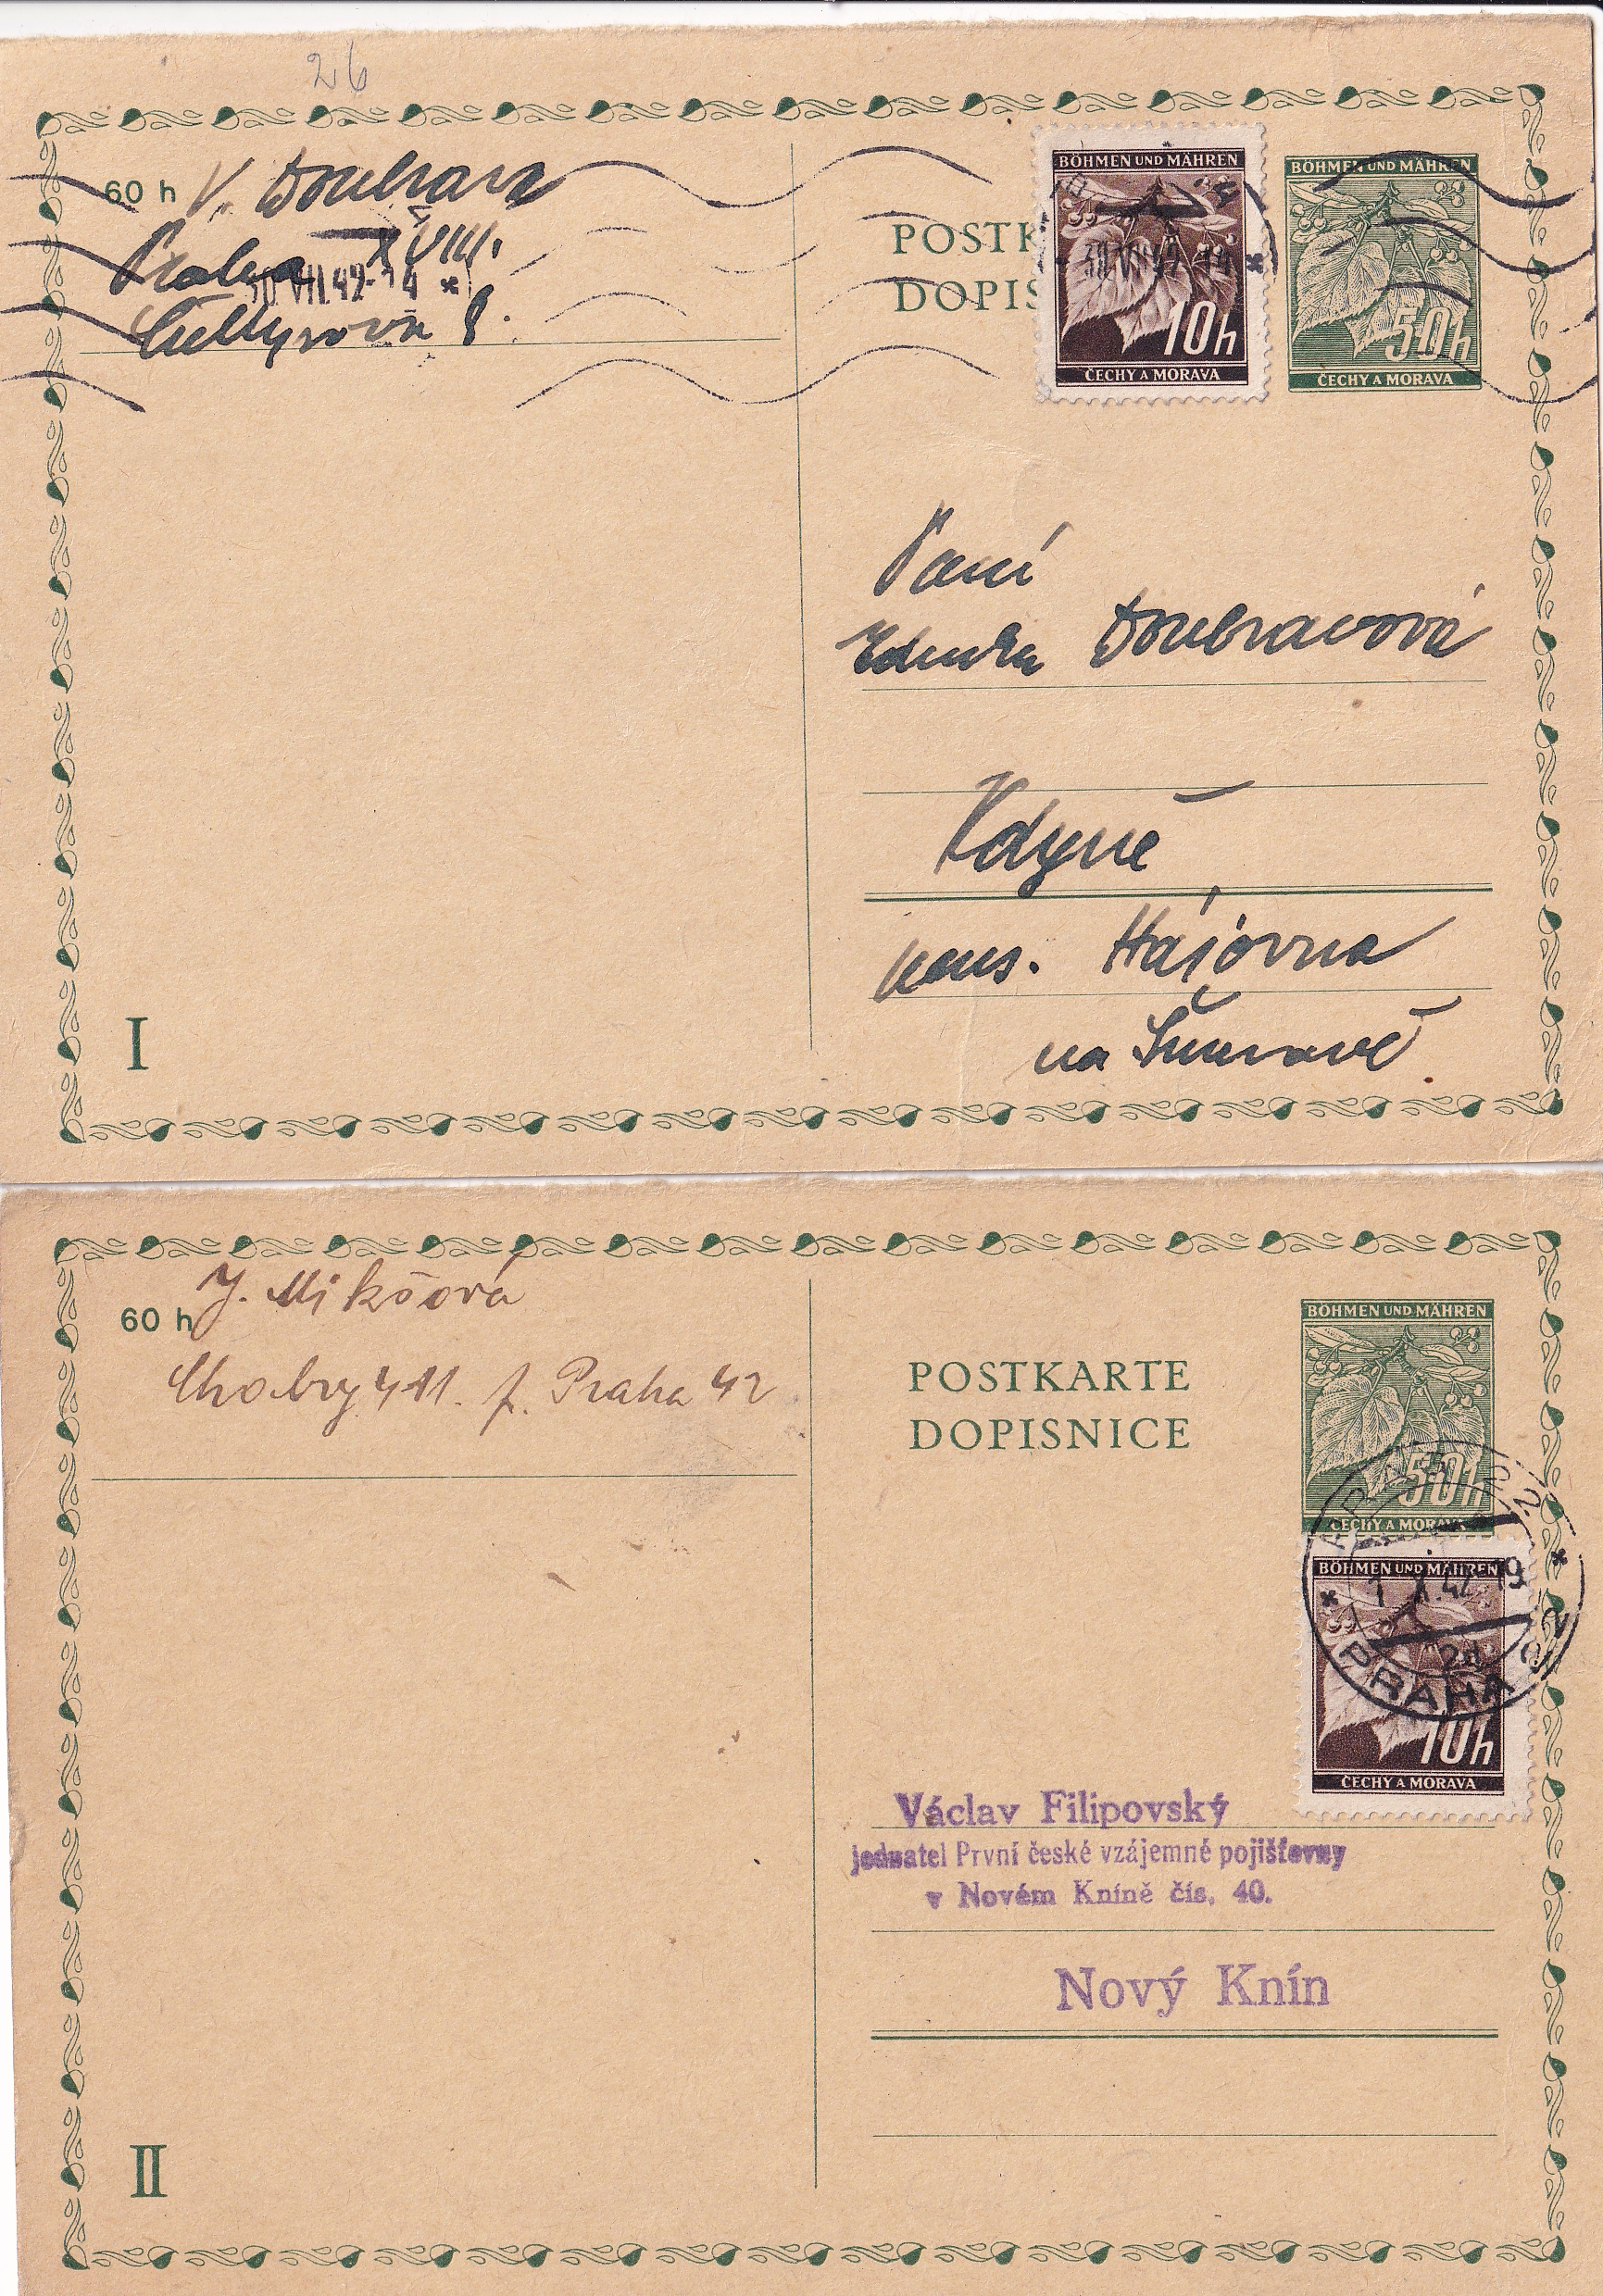 26
60 h
V. Doubrava
Praha XVIII.
30.VII.42-14 *
8.
POSTK
DOPIS
BÖHMEN UND MÄHREN
10h
ČECHY A MORAVA
BÖHMEN UND MÄHREN
50h
ČECHY A MORAVA
Paní
Zdenka Doubravová
Kdyně
pens. Hájovna
na Šumavě
I
60 h
J. Mikšová
Chabry 411. p. Praha 42
POSTKARTE
DOPISNICE
BÖHMEN UND MÄHREN
50h
ČECHY A MORAVA
BÖHMEN UND MÄHREN
10h
ČECHY A MORAVA
PRAHA
Václav Filipovský
jednatel První české vzájemné pojišťovny
v Novém Kníně čís. 40.
Nový Knín
II